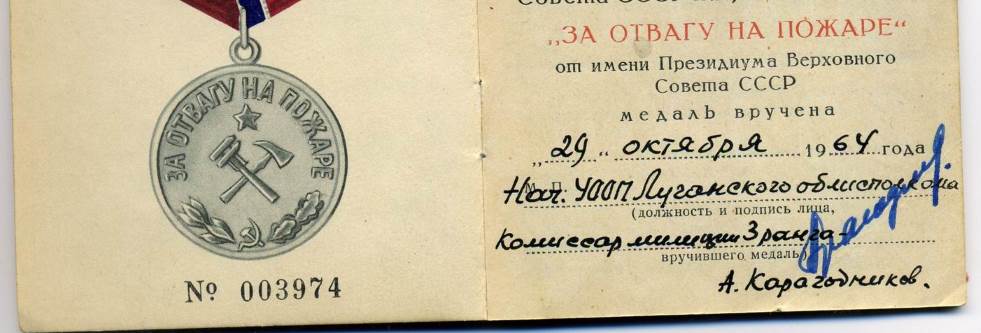 ЗА ОТВАГУ НА ПОЖАРЕ
№ 003974
Совета СССР
„ЗА ОТВАГУ НА ПОЖАРЕ“
от имени Президиума Верховного
Совета СССР
медаль вручена
„29“ октября 1964 года
М. П.
Нач. УООП Луганского облисполкома
(должность и подпись лица,
Комиссар милиции 3 ранга
вручившего медаль)
А. Карагодников.